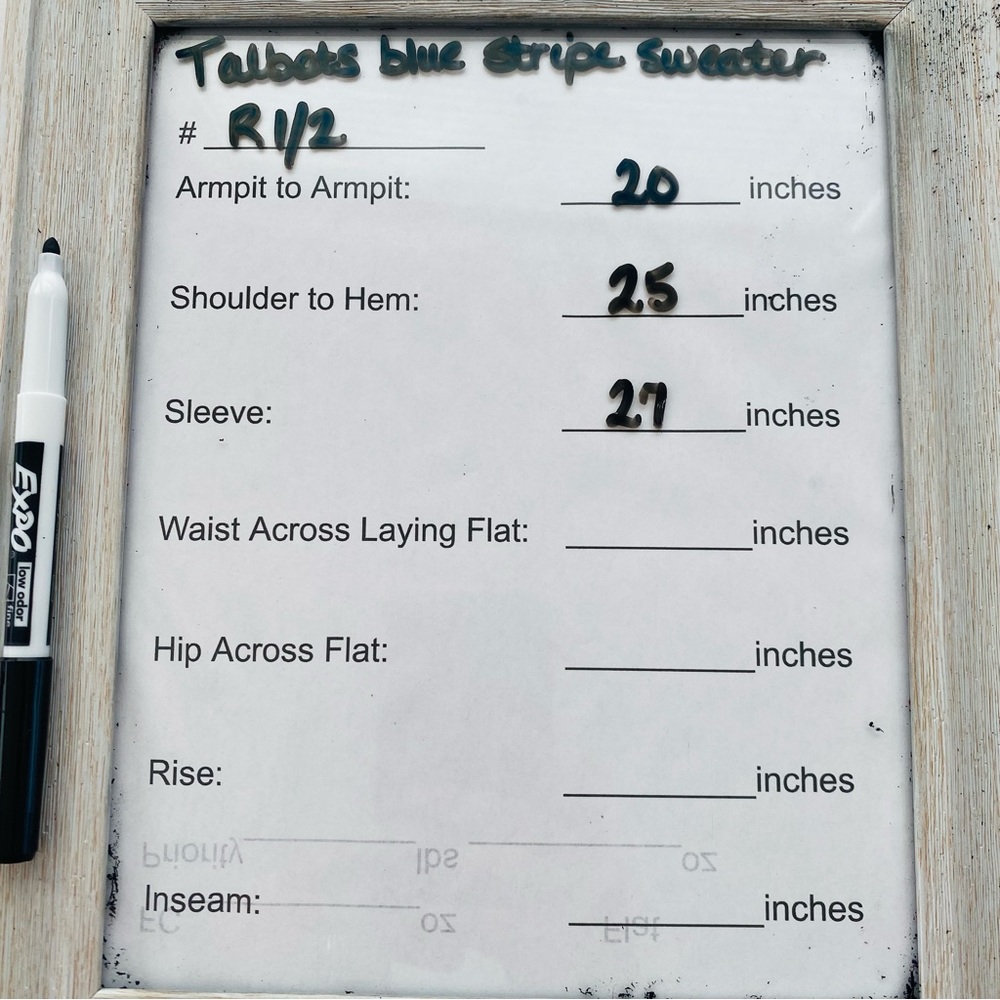 Talbots blue stripe sweater
# R 1/2
Armpit to Armpit: 20 inches
Shoulder to Hem: 25 inches
Sleeve: 27 inches
Waist Across Laying Flat: ______ inches
Hip Across Flat: ______ inches
Rise: ______ inches
Priority ______ lbs ______ oz
Inseam: ______ inches
FC ______ oz Flat
EXPO
low odor